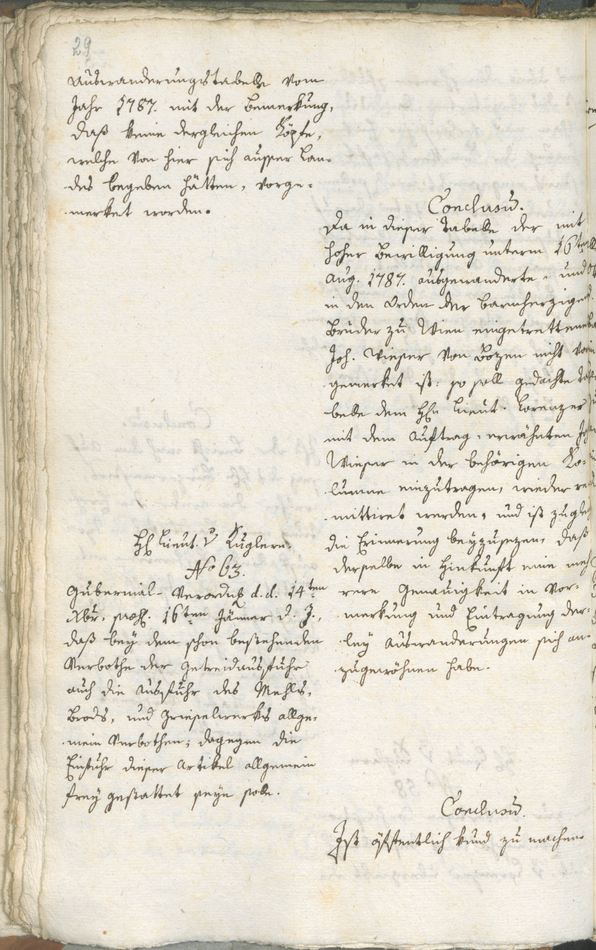 29
Auswanderungstabelle vom
Jahr 1787. mit der Bemerkung,
daß keine dergleichen Köpfe,
welche von hier sich ausser Lan-
des begeben hätten, vorge-
merket worden.
Conclusũ.
Da in dieser Tabelle der mit
hoher Bewilligung unterm 16ten
Aug. 1787. ausgewanderte, und
in den Orden der Barmherzigen
Brüder zu Wien eingetrettene
Joh. Wieser von Bozen nicht vor-
gemerket ist: so soll gedachte Ta-
belle dem H. Lieut. Lorenzer
mit dem Auftrag, erwähnten Joh.
Wieser in der behörigen Ko-
lumne einzutragen, wieder re-
mittiret werden, und ist zugleich
die Erinnerung beyzusezen, daß
derselbe in Hinkunft eine meh-
rere Genauigkeit in Vor-
merkung und Eintragung der-
ley Auswanderungen sich an-
zugewöhnen habe.
H. Lieut. v Kuglern.
No 63.
Gubernial-Verordnß d.d. 14ten
Xbr, 16ten Jäner d. J.,
daß bey dem schon bestehenden
Verbothe der Getreidausfuhr
auch die Ausfuhr des Mehls,
Brods, und Grieselwerks allge-
mein verbothen; dagegen die
Einfuhr dieser Artikel allgemein
frey gestattet seyn solle.
Conclusũ.
Ist öffentlich kund zu machen.